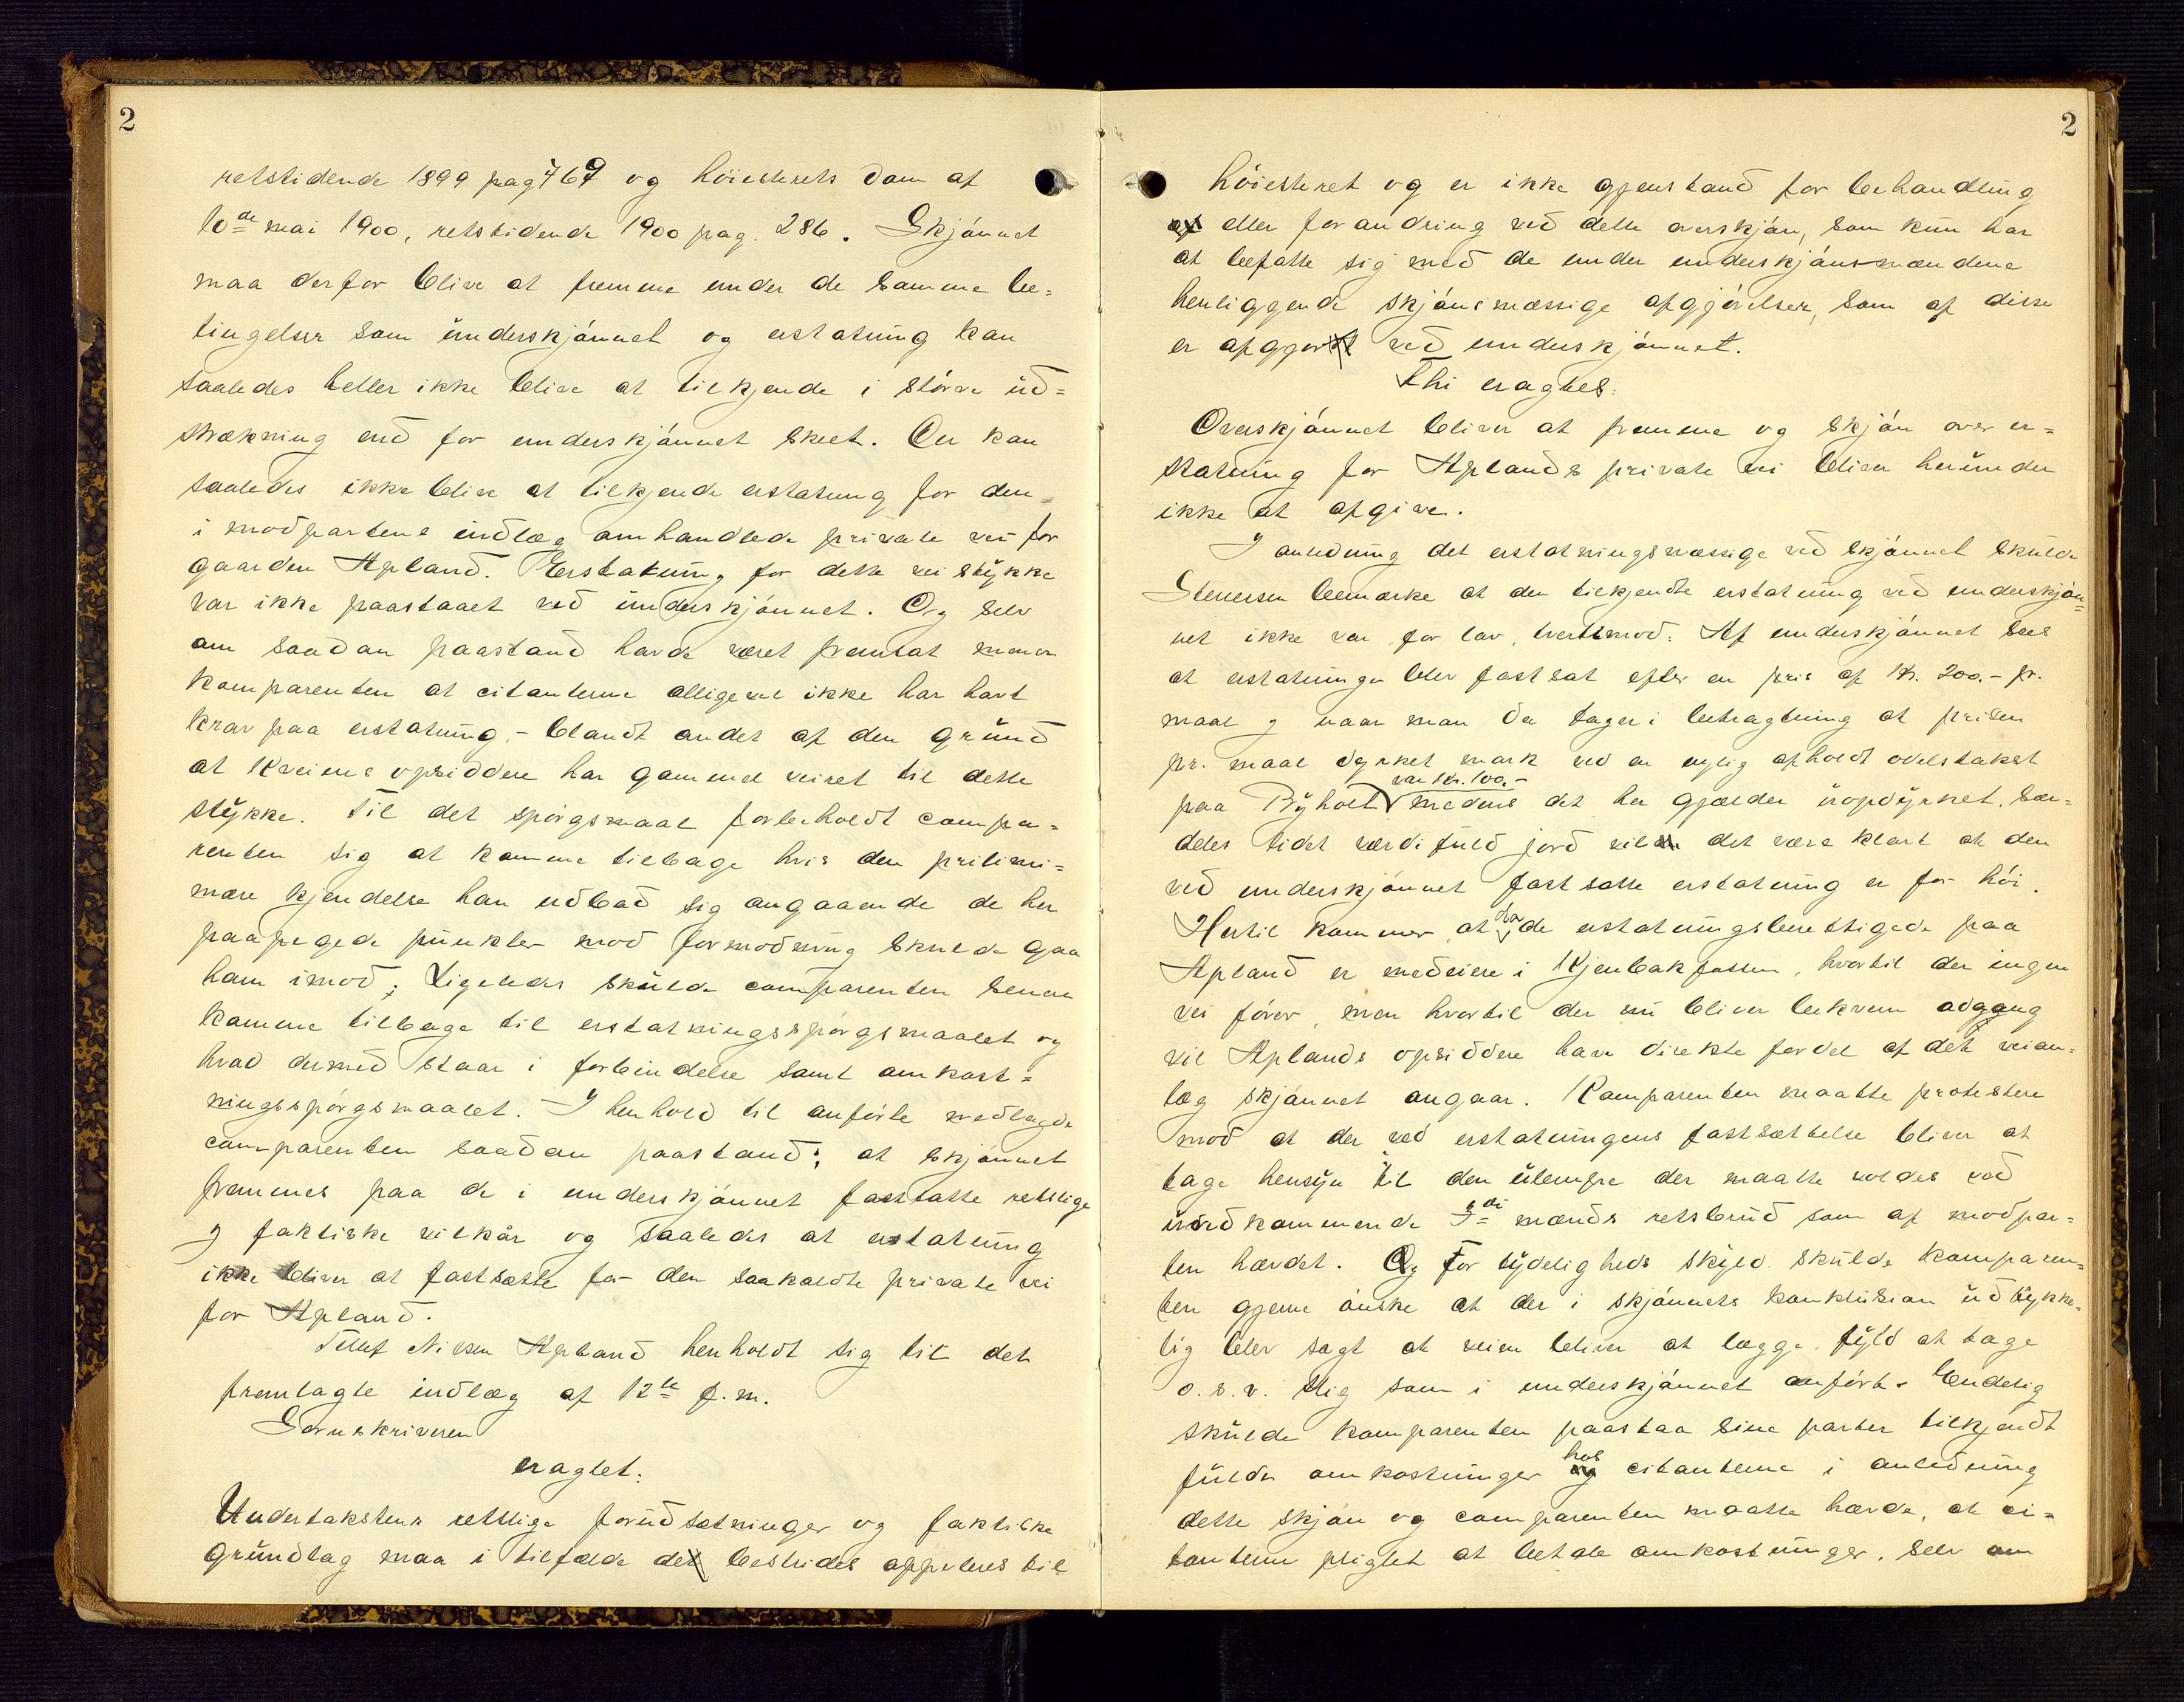 2
retstidende 1899 pag 769 og höiesterets dom af
10de mai 1900, retstidende 1900 pag. 286. Skjönnet
maa derfor blive at fremme under de samme be=
tingelser som underskjönnet og erstatning kan
saaledes heller ikke blive at tilkjende i större ud=
strækning end for underskjönnet skeet. Der kan
saaledes ikke blive at tilkjende erstatning for den
i modpartens indlæg omhandlede private vei for
gaarden Apland. Erstatning for dette vei stykke
var ikke paastaaet ved underskjönnet. Og selv
om saadan paastand havde været fremsat mener
komparenten at citanterne alligevel ikke har havt
krav paa erstatning, - blandt andet af den grund
at Kveims opsiddere har gammel veiret til dette
stykke. Til det spörgsmaal forbeholdt compa=
renten sig at komme tilbage hvis den prilimi=
nære kjendelse han udbad sig angaaende de her
paapegede punkter mod formodning skulde gaa
ham imod; Ligeledes skulde comparenten senere
komme tilbage til erstatningsspörgsmaalet og
hvad dermed staar i forbindelse samt omkost=
ningsspörgsmaalet. I henhold til anförte nedlagde
comparenten saadan paastand: at skjönnet
fremmes paa de i underskjönnet fastsatte retslige
og faktiske vilkår og saaledes at erstatning
ikke bliver at fastsætte for den saakaldte private vei
for Apland.
Tellef Nilsen Apland henholdt sig til det
fremlagte indlæg af 12te f.m.
Sorenskriveren
eragtet:
Undertakstens retslige forudsætninger og faktiske
grundlag maa i tilfælde det bestrides appelleres til
2
höiesteret og er ikke gjenstand for behandling
af eller forandring ved dette overskjön, som kun har
at befatte sig med de under underskjönsmændene
henliggende skjönsmæssige afgjörelser, som af disse
er afgjort ved underskjönnet.
Thi eragtes:
Overskjönnet bliver at fremme og skjön over er=
statning for Aplands private vei bliver herunder
ikke at afgive.
I anledning det erstatningsmæssige ved skjönnet skulde
Stenersen bemærke at den tilkjendte erstatning ved underskjön=
net ikke var for lav, tvertimod. Af underskjönnet sees
at erstatningen blev fastsat efter en pris af Kr. 200.- pr.
maal og naar man da tager i betragtning at prisen
pr. maal dyrket mark ved en nylig afholdt odelstakst
var kr. 100.-
paa Byholt medens det her gjælder uopdyrket, sær=
deles lidet værdifuld jord vil det være klart at den
ved underskjönnet fastsatte erstatning er for höi.
Hertil kommer at da de erstatningsberettigede paa
Apland er medeiere i Kjenbakfossen, hvortil der ingen
vei förer, men hvortil der nu bliver bekvem adgang
vil Aplands opsiddere have direkte fordel af det veian=
læg skjönnet angaar. Komparenten maatte protestere
mod at der ved erstatningens fastsættelse bliver at
tage hensyn til den ulempe der maatte voldes ved
uvedkommende 3die mands retsbrud som af modpar=
ten hævdet. Og for tydeligheds skyld skulde komparen=
ten gjerne önske at der i skjönnets konklusion udtrykke=
lig blev sagt at veien bliver at lægge, fyld at tage
o.s.v. slig som i underskjönnet anfört. Endelig
skulde komparenten paastaa sine parter tilkjendt
fulde omkostninger hos citanterne i anledning
dette skjön og comparenten maatte hævde, at ci=
tanterne pligtet at betale omkostninger, selv om